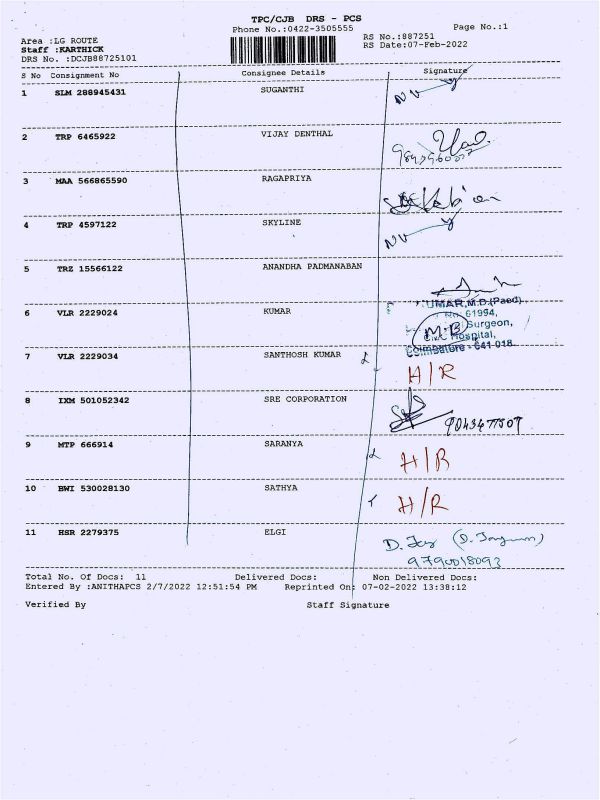 TPC/CJB DRS - PCS
Phone No.:0422-3505555
Page No.:1
Area :LG ROUTE
RS No.:887251
Staff :KARTHICK
RS Date:07-Feb-2022
DRS No. :DCJB88725101
S No Consignment No Consignee Details Signature
1 SLM 288945431 SUGANTHI
2 TRP 6465922 VIJAY DENTHAL
3 MAA 566865590 RAGAPRIYA
4 TRP 4597122 SKYLINE
5 TRZ 15566122 ANANDHA PADMANABAN
6 VLR 2229024 KUMAR
UMAR,M.D.(Paed)
61994,
Surgeon,
Hospital,
Coimbatore - 641 018.
7 VLR 2229034 SANTHOSH KUMAR H/R
8 IXM 501052342 SRE CORPORATION
9 MTP 666914 SARANYA H/R
10 BWI 530028130 SATHYA H/R
11 HSR 2279375 ELGI
9790018093
Total No. Of Docs: 11 Delivered Docs: Non Delivered Docs:
Entered By :ANITHAPCS 2/7/2022 12:51:54 PM Reprinted On: 07-02-2022 13:38:12
Verified By Staff Signature